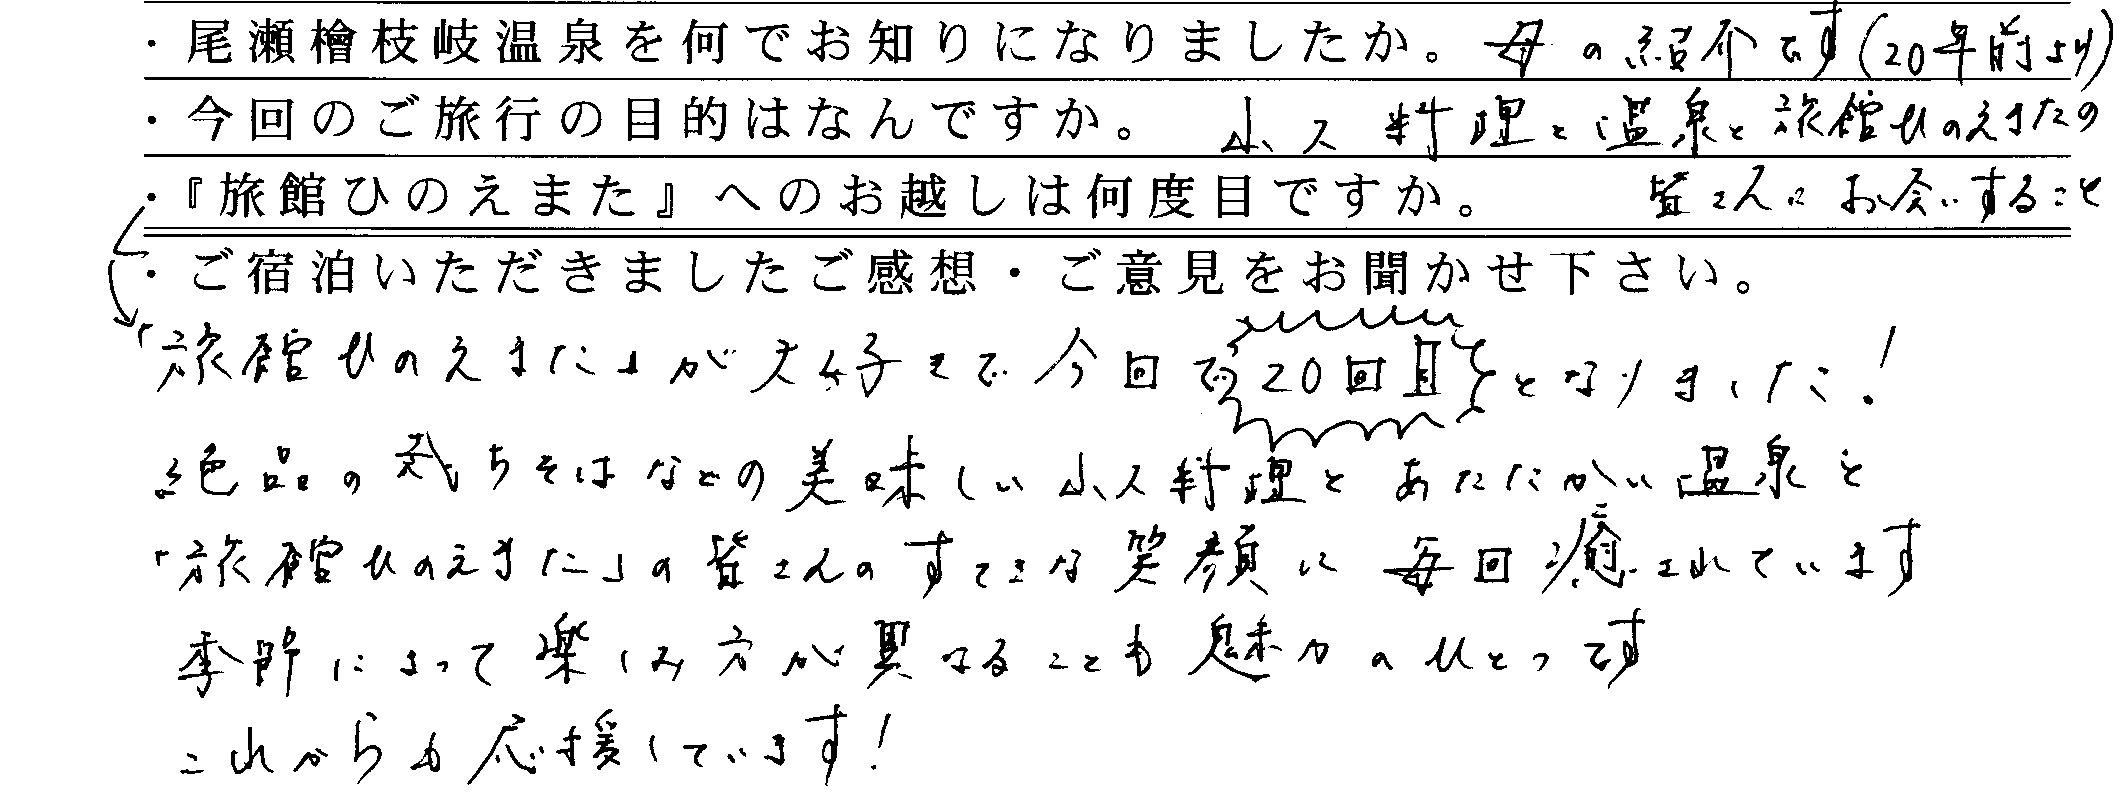 ・尾瀬檜枝岐温泉を何でお知りになりましたか。母の紹介です(20年前より)
・今回のご旅行の目的はなんですか。山人料理と温泉と旅館ひのえまたの
・『旅館ひのえまた』へのお越しは何度目ですか。皆さんにお会いすること
・ご宿泊いただきましたご感想・ご意見をお聞かせ下さい。
「旅館ひのえまた」が大好きで今回で20回目となりました!
絶品の裁ちそばなどの美味しい山人料理とあたたかい温泉と
「旅館ひのえまた」の皆さんのすてきな笑顔に毎回癒されています
季節によって楽しみ方が異なることも魅力のひとつです
これからも応援しています!